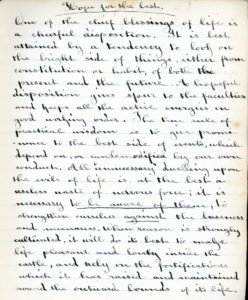 Hope for the best.
One of the chief blessings of life is
a cheerful disposition. It is best
attained by a tendency to look on
the bright side of things, either from
constitution or habit, of both the
present & the future. A hopeful
disposition gives spur to the faculties
and keeps all the active energies in
good working order. The true rule of
practical wisdom is to give promi-
nence to the best side of events, which
depend on, or can be modified by our own
conduct. All unnecessary dwelling upon
the evils of life is at the best a
useless waste of nervous force; it is
necessary to be aware of them, to
strengthen ourselves against the baseness
and unwariness. When reason is strongly
cultivated, it will do its best to make
life pleasant and lovely inside the
castle, and rely on the fortifications
which it has raised and maintained
round the outward bounds of its life,